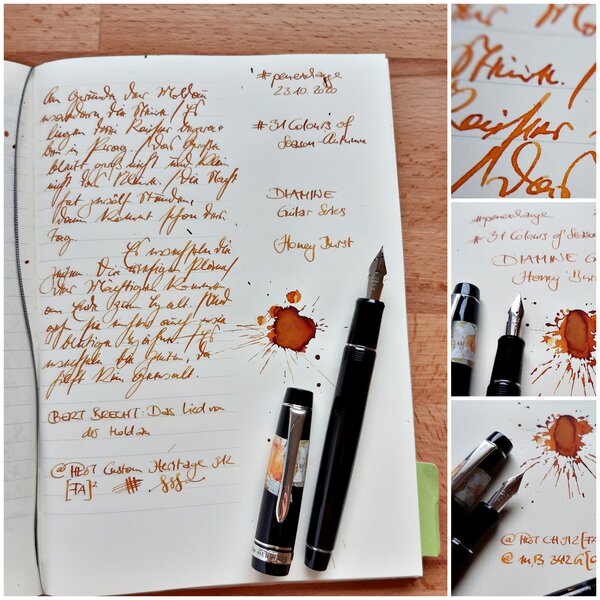 Am Grunde der Moldau
wandern die Steine / Es
liegen drei Kaiser begra-
ben in Prag. / Das Große
bleibt groß nicht und klein
nicht das Kleine. / Die Nacht
hat zwölf Stunden,
dann kommt schon der
Tag.
Es wechseln die
Zeiten. Die riesigen Pläne /
der Mächtigen kommen
am Ende zum Halt. / Und
gehn sie einher auch wie
blutige Hähne / Es
wechseln die Zeiten, da
hilft kein Gewalt.
BERT BRECHT: Das Lied von
der Moldau
Custom Heritage 912
[FA]
#penenlange
23.10.2020
#31 Colours of
Season Autumn
DIAMINE
Guitar Series
Honey Burst
Stein. /
Kaiser
/ Das
#penenlange
#31 Colours of Season
DIAMINE G
Honey Burs
CH 912 [FA